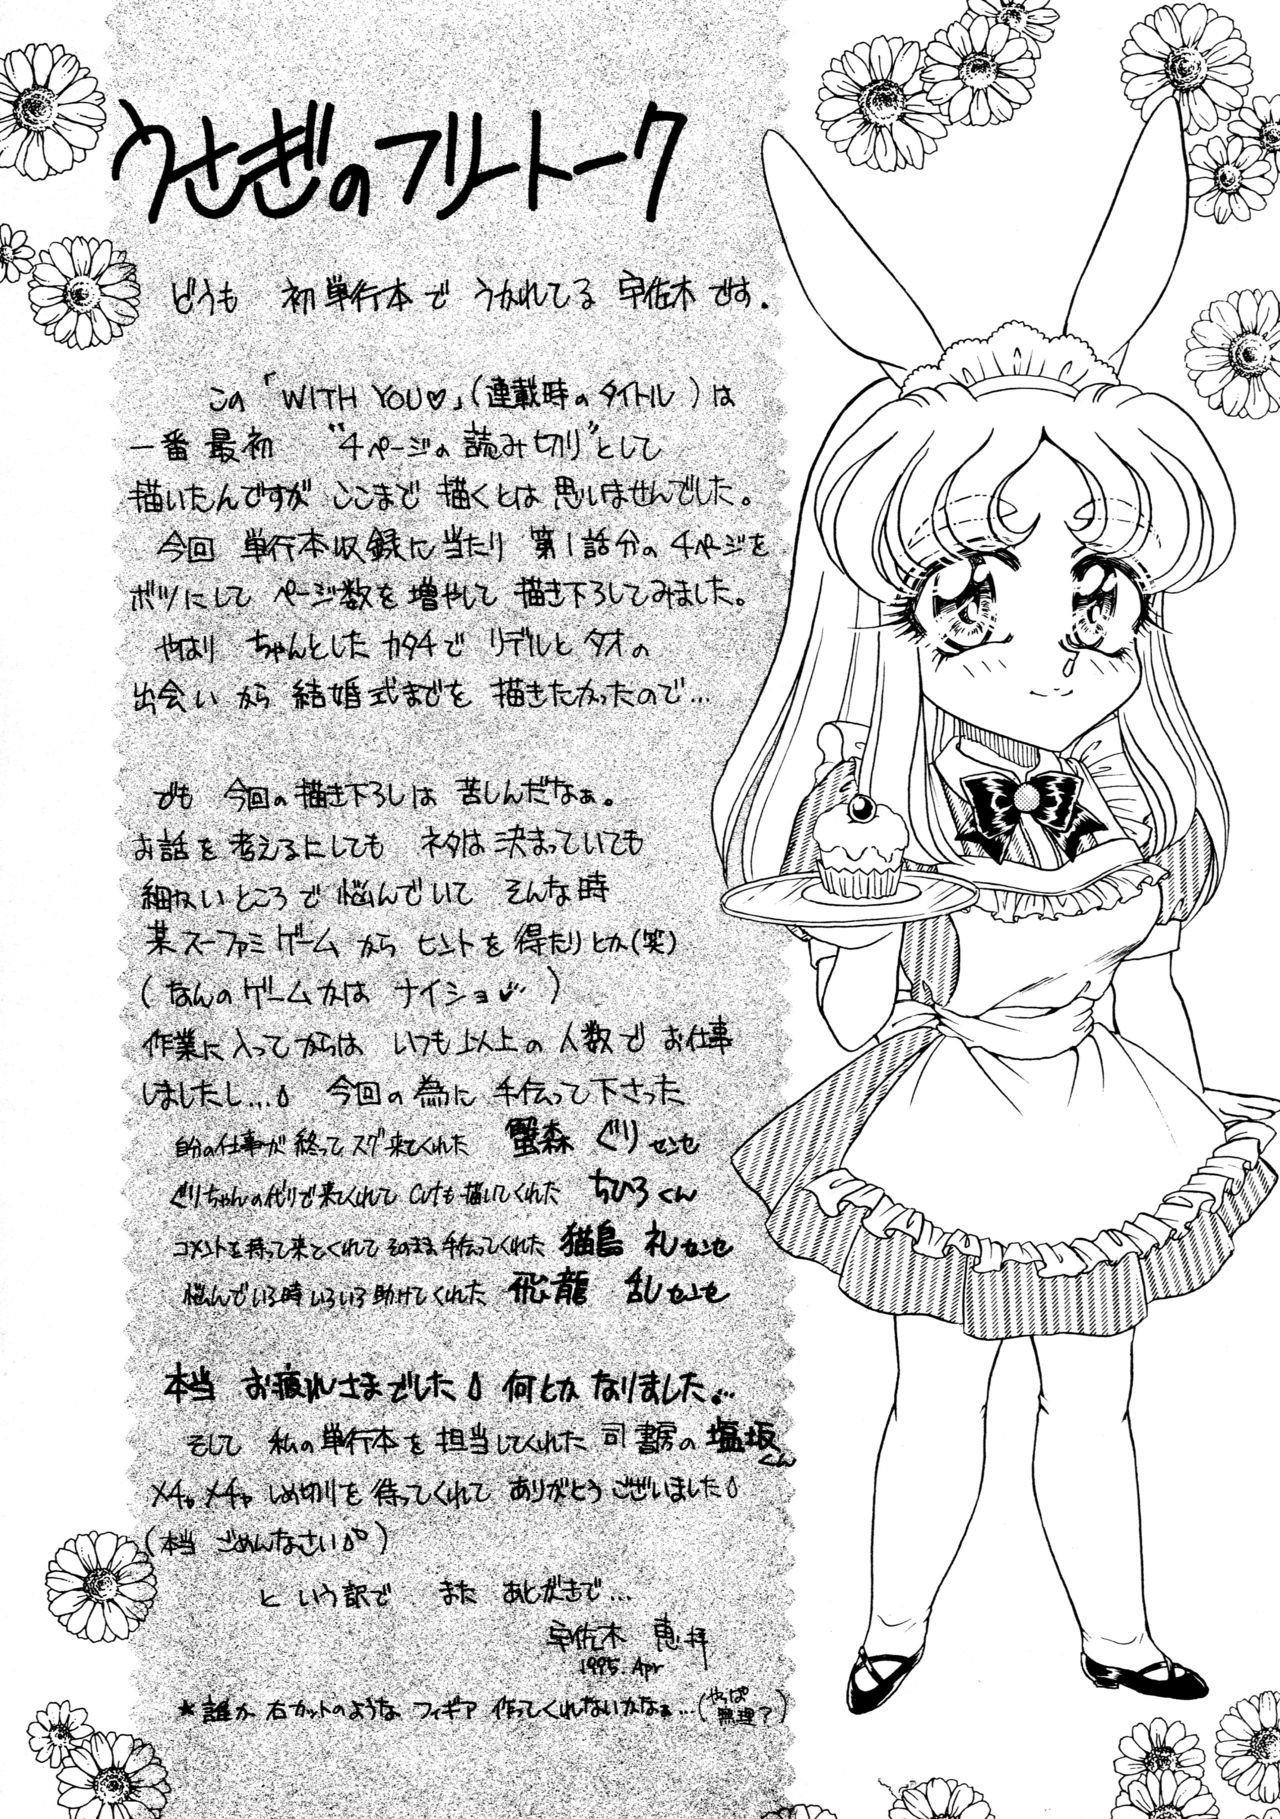 うさぎのフリートーク
どうも 初単行本で うかれてる 宇佐木です.
この「WITH YOU♡」(連載時のタイトル)は
一番最初 “4ページの読み切り”として
描いたんですが ここまで 描くとは思いませんでした。
今回 単行本収録に当たり 第1話分の4ページを
ボツにして ページ数を増やして 描き下ろしてみました。
やはり ちゃんとしたカタチで リデルと タオの
出会いから 結婚式までを 描きたかったので…
でも 今回の描き下ろしは 苦しんだなぁ。
お話を考えるにしても ネタは決まっていても
細かいところで悩んでいて そんな時
某スーファミゲームから ヒントを得たりとか(笑)
(なんのゲームかは ナイショ♡)
作業に入ってからは いつも以上の人数でお仕事
しましたし… 今回の為に 手伝って下さった
自分の仕事が終ってスグ来てくれた 蟹森 ぐりセンセ
ぐりちゃんの代りで来てくれて cutも描いてくれた ちひろくん
コメントを持って来てくれて そのまま手伝ってくれた 猫島 礼センセ
悩んでいる時いろいろ助けてくれた 飛龍 乱センセ
本当 お疲れさまでした 何とかなりました…
そして 私の単行本を担当してくれた 司書房の塩坂くん
メチャメチャ しめ切りを待ってくれて ありがとうございました
(本当 ごめんなさい)
という訳で また あとがきで…
宇佐木 恵拝
1995. Apr
★誰か 右カットのような フィギア 作ってくれないかなぁ…(やっぱ無理?)